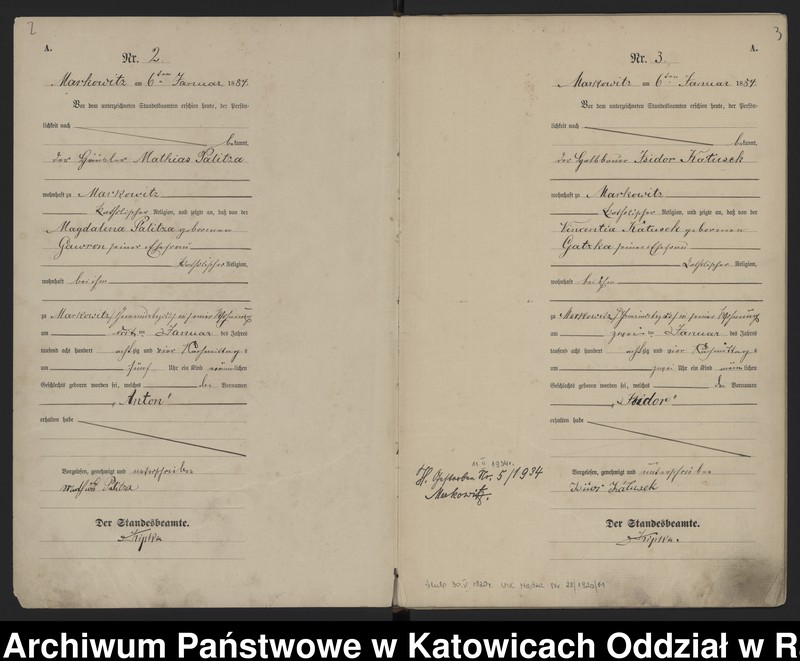 2
A.
Nr. 2
Markowitz am 6ten Januar 1884.
Vor dem unterzeichneten Standesbeamten erschien heute, der Persön-
lichkeit nach
bekannt,
der Häusler Mathias Palitza
wohnhaft zu Markowitz
katholischer Religion, und zeigte an, daß von der
Magdalina Palitza geborenen
Gawron seiner Ehefrau
katholischer Religion,
wohnhaft bei ihm
zu Markowitz in seiner Wohnung
am Januar des Jahres
tausend acht hundert achtzig und vier Nachmittag s
um fünf Uhr ein Kind männlichen
Geschlechts geboren worden sei, welches den Vornamen
„Anton“
erhalten habe
Vorgelesen, genehmigt und unterschrieben
Mathias Palitza
Der Standesbeamte.
3
A.
Nr. 3.
Markowitz am 6ten Januar 1884.
Vor dem unterzeichneten Standesbeamten erschien heute, der Persön-
lichkeit nach
bekannt,
der Halbbauer Isidor Katusch
wohnhaft zu Markowitz
katholischer Religion, und zeigte an, daß von der
Vincentia Katusch geborenen
Gatzka seiner Ehefrau
katholischer Religion,
wohnhaft bei ihm
zu Markowitz in seiner Wohnung
am zweiten Januar des Jahres
tausend acht hundert achtzig und vier Nachmittag s
um zwei Uhr ein Kind männlichen
Geschlechts geboren worden sei, welches den Vornamen
„Isidor“
erhalten habe
Vorgelesen, genehmigt und unterschrieben
Katusch
Der Standesbeamte.
11 II 1934r.
H. Gestorben Nr. 5/1934
Markowitz.
30.V 1920r. Nr 28/1920/61
Archiwum Państwowe w Katowicach Oddział w R